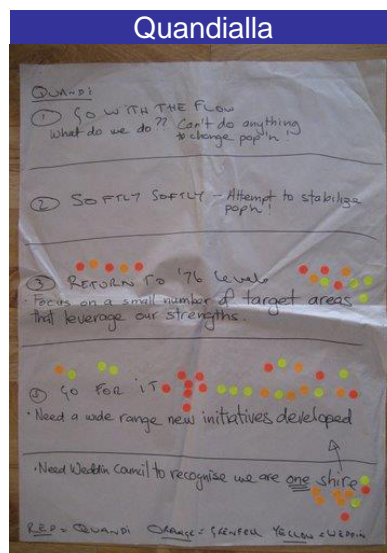 Quandialla
QUANDI
① GO WITH THE FLOW
What do we do?? Can't do anything
to change pop'n!
② SOFTLY SOFTLY - Attempt to stabilize
pop'n!
③ RETURN TO '76 levels
· Focus on a small number of target areas
that leverage our strengths.
GO FOR IT
· Need a wide range new initiatives developed
· Need Weddin Council to recognise we are one shire
RED = QUANDI ORANGE = GRENFELL YELLOW = WEDDIN